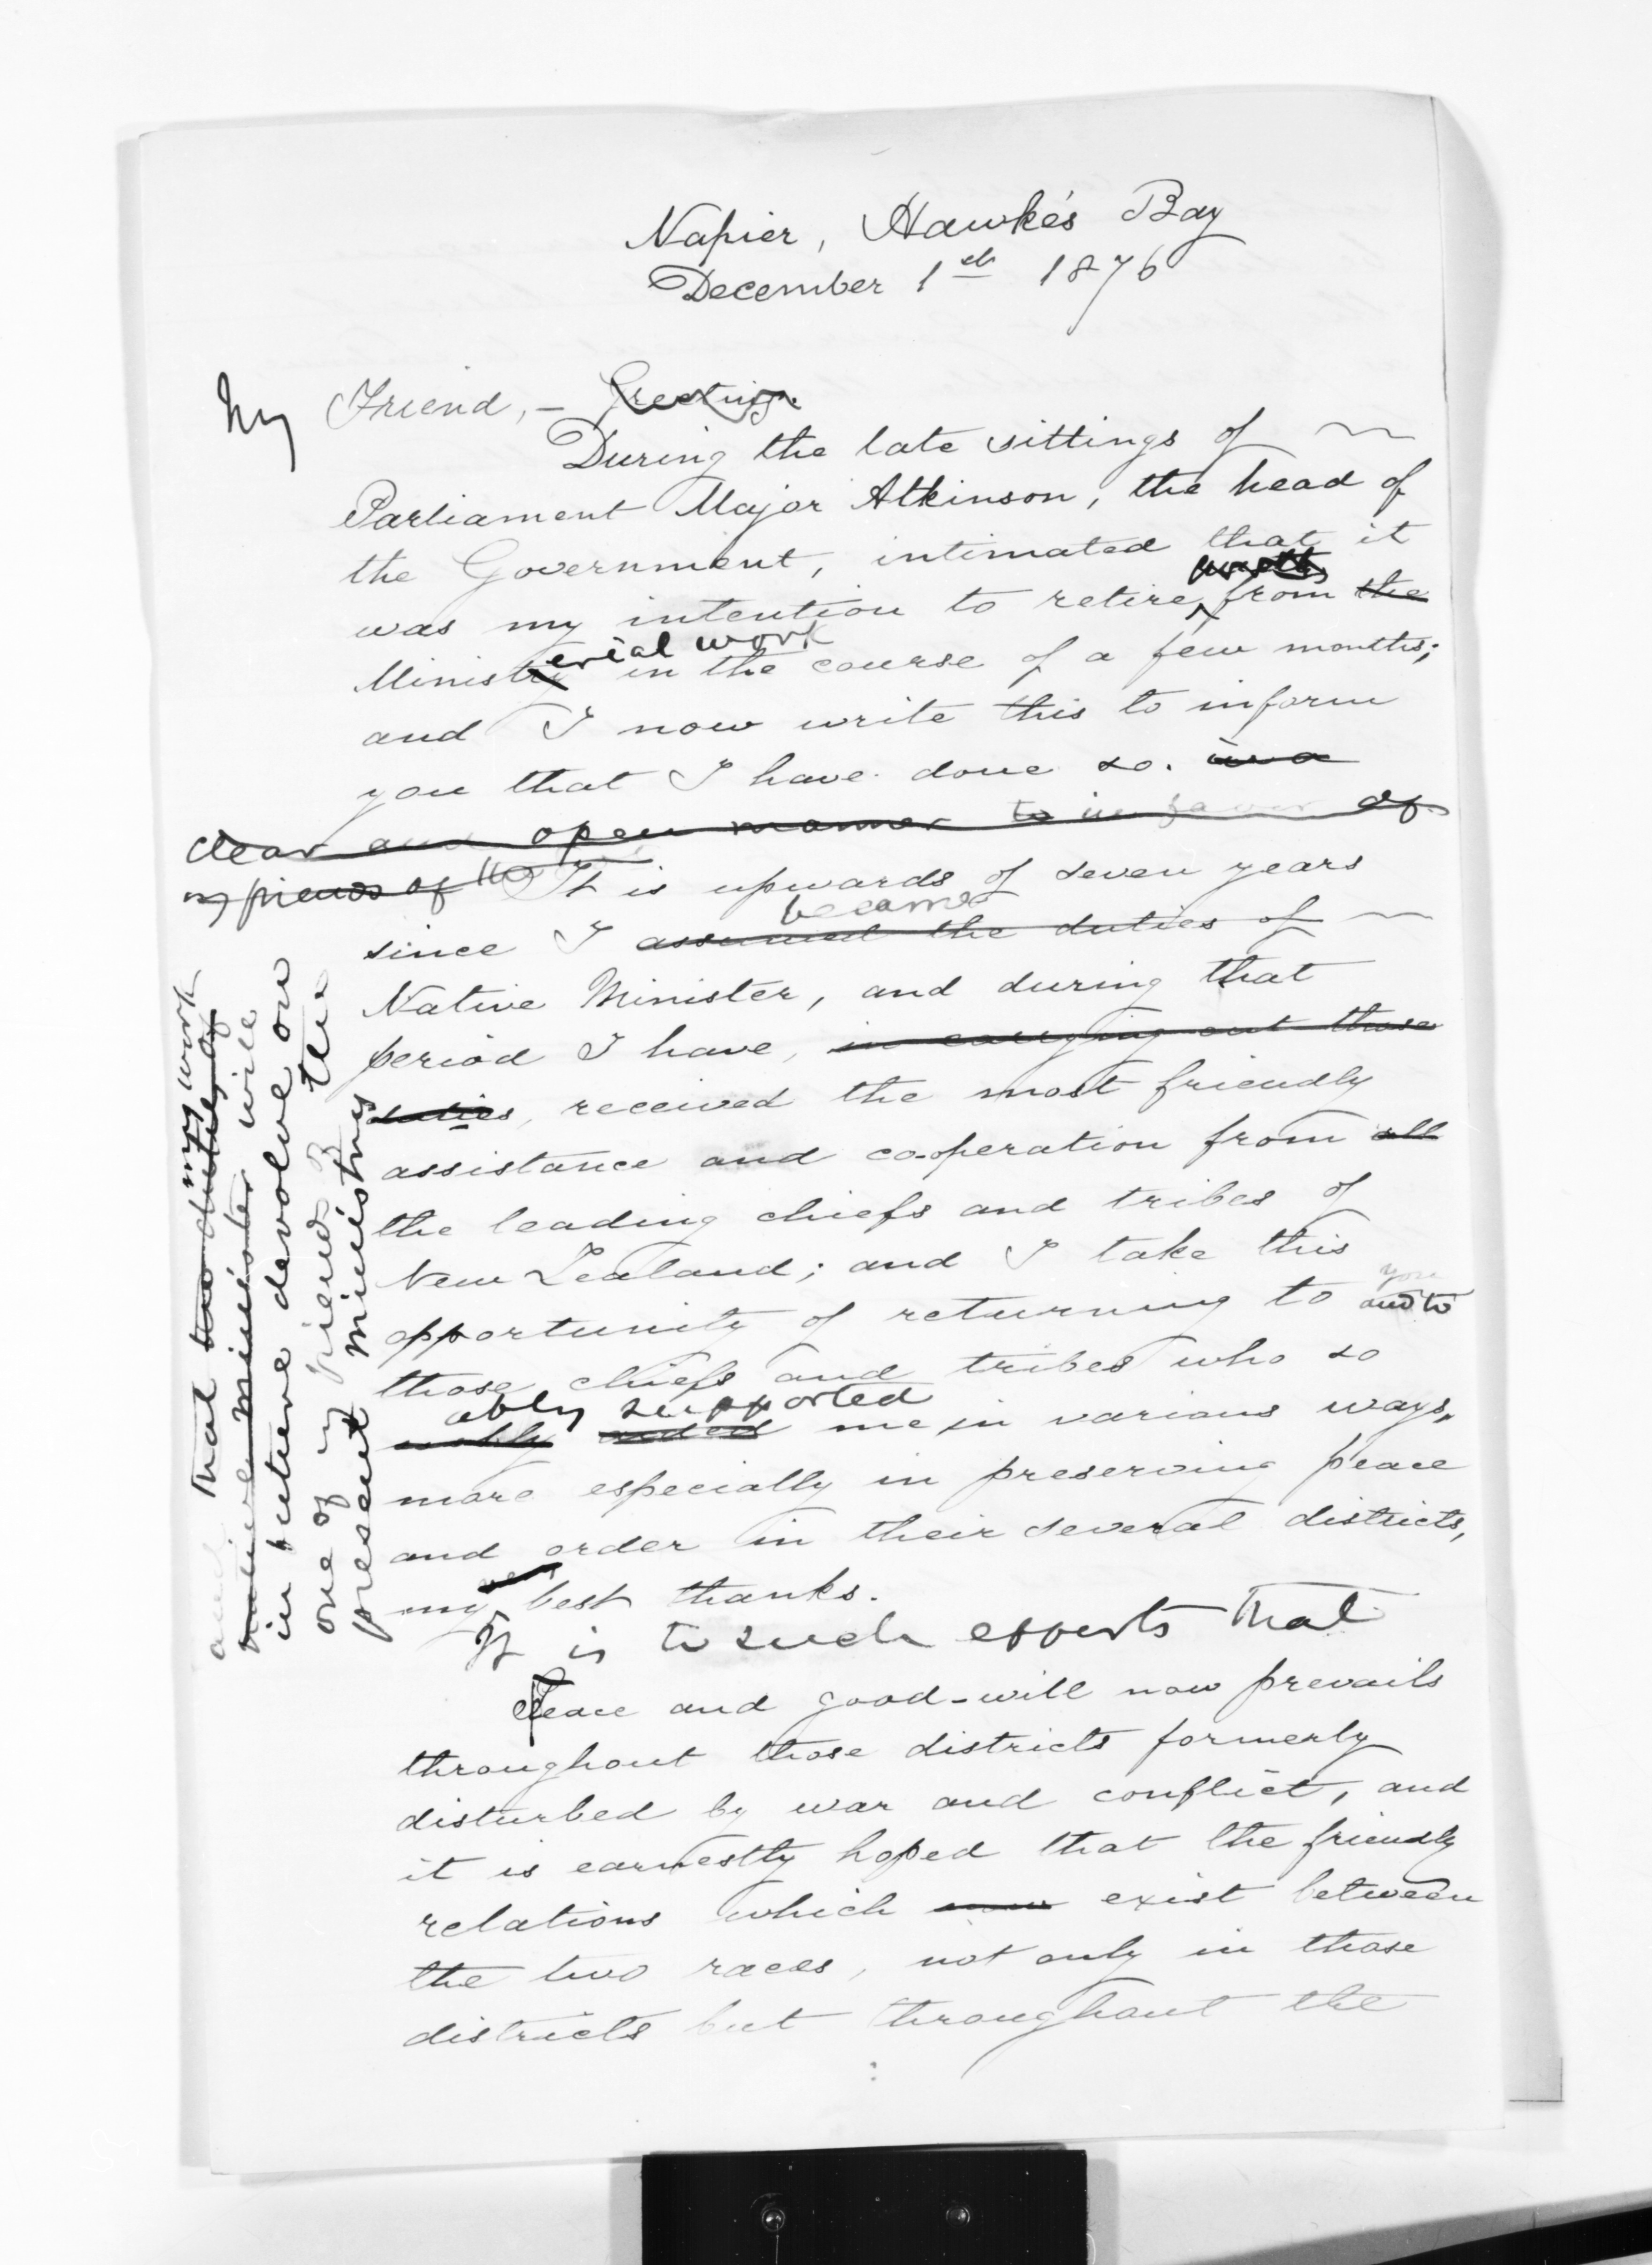 Napier, Hawke's Bay
December 1st 1876
My Friend, — Greeting.
During the late sittings of
Parliament Major Atkinson, the head of
the Government, intimated that it
was my intention to retire from the
Ministry erial work in the course of a few months;
and I now write this to inform
you that I have done so. in a
clear and open manner to in favor of
my friends of the It is upwards of seven years
became
since I assumed the duties of
Native Minister, and during that
period I have, in carrying out those
duties, received the most friendly
assistance and co-operation from all
the leading chiefs and tribes of
New Zealand; and I take this
you
opportunity of returning to and to
those chiefs and tribes who so
ably supported
nobly aided me in various ways,
more especially in preserving peace
and order in their several districts,
my very best thanks.
It is to such efforts that
Peace and good-will now prevails
throughout those districts formerly
disturbed by war and conflict, and
it is earnestly hoped that the friendly
relations which now exist between
the two races, not only in those
districts but throughout the
my work
and that the duties of
native minister will
in future devolve on
one of my friends in the
present ministry